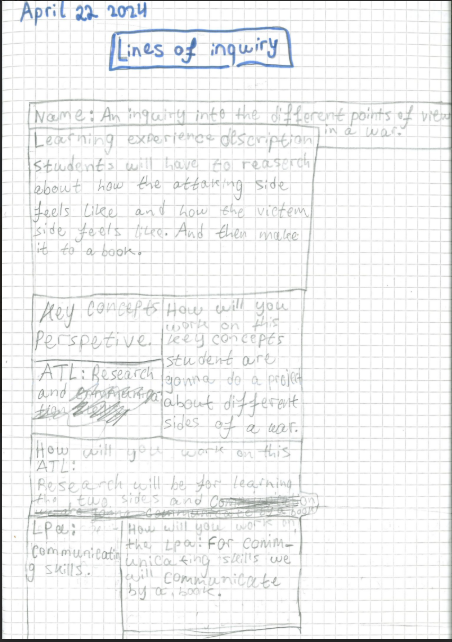 April 22 2024
Lines of inquiry
Name: An inquiry into the different points of view
in a war.
Learning experience description
students will have to reaserch
about how the attaking side
feels like and how the victem
side feels like. And then make
it to a book.
Key concepts
Perspetive.
How will you
work on this
key concepts
student are
gonna do a project
about different
sides of a war.
ATL: Research
and
How will you work on this
ATL:
Research will be for learning
the two sides and
Lpa:
communicatin
g skills.
How will you work on
the Lpa: For comm-
unicating skills we
will communicate
by a book.